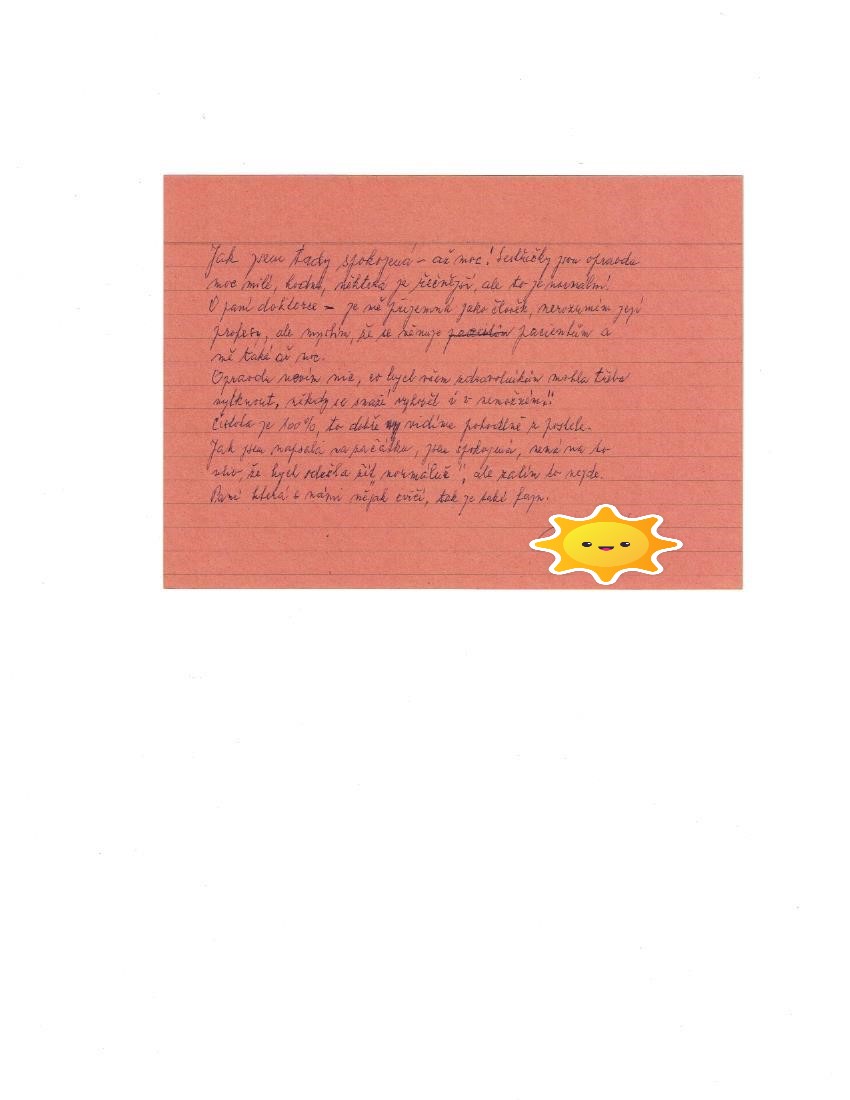 Jak jsem tady spokojená – až moc! Sestřičky jsou opravdu
moc milé, hodné, některá je řečnější, ale to je normální.
O paní doktorce – je mě příjemná jako člověk, nerozumím její
profesy, ale myslím, že se věnuje pacientům a
mě také až moc.
Opravdu nevím nic, co bych všem zdravotníkům mohla třeba
vytknout, někdy se snaží vyhovět i v nemožném!!
Čistota je 100%, to dobře vidíme pohodlně z postele.
Jak jsem napsala na začátku, jsem spokojená, nemá na to
vliv, že bych odešla žít „normálně", ale zatím to nejde.
Paní která s námi nějak cvičí, tak je také fajn.